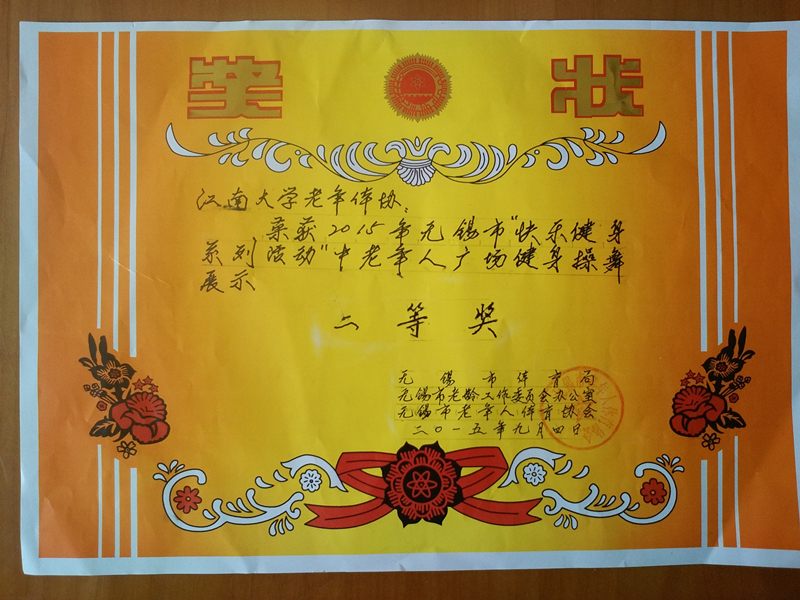 奖状
江南大学老年体协:
荣获2015年无锡市"快乐健身
系列活动"中老年人广场健身操舞
展示
二等奖
无锡市体育局
无锡市老龄工作委员会办公室
无锡市老年人体育协会
二〇一五年九月四日